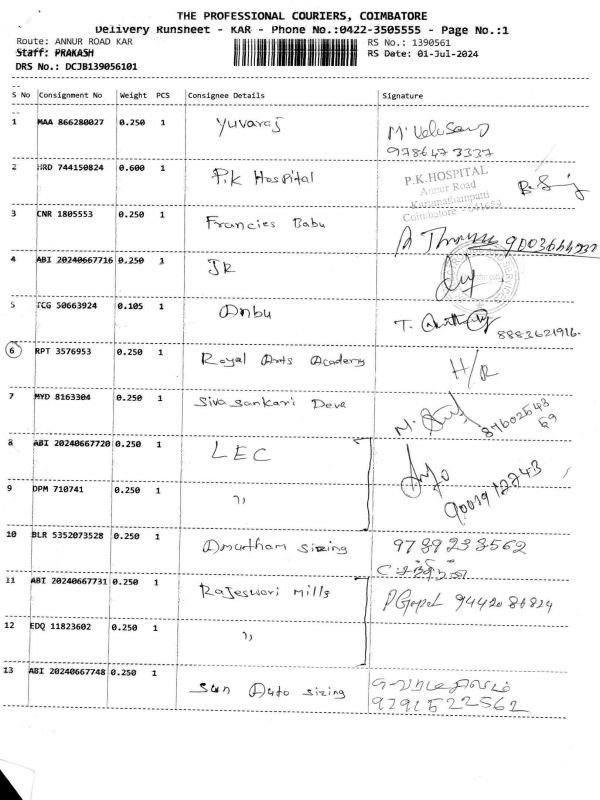 THE PROFESSIONAL COURIERS, COIMBATORE
Delivery Runsheet - KAR - Phone No.:0422-3505555 - Page No.:1
Route: ANNUR ROAD KAR RS No.: 1390561
Staff: PRAKASH RS Date: 01-Jul-2024
DRS No.: DCJB139056101
S No Consignment No Weight PCS Consignee Details Signature
1 MAA 866280027 0.250 1 Yuvaraj
9786473337
2 HRD 744150824 0.600 1 P.K Hospital
P.K.HOSPITAL
Annur Road
Karumathampatti
Coimbatore - 641659
3 CNR 1805553 0.250 1 Francies Babu
4 ABI 20240667716 0.250 1 JK
5 TCG 50663924 0.105 1 Anbu T.
8883621916.
6 RPT 3576953 0.250 1 Royal Arts Academy H/R
7 MYD 8163304 0.250 1 Siva Sankari Deva M.
8 ABI 20240667720 0.250 1 LEC
9 DPM 710741 0.250 1 "
10 BLR 5352073528 0.250 1 Amurtham sizing 9789233562
11 ABI 20240667731 0.250 1 Rajeswari mills P Gopal 9442086824
12 EDQ 11823602 0.250 1 "
13 ABI 20240667748 0.250 1 Sun Auto sizing
9791522562